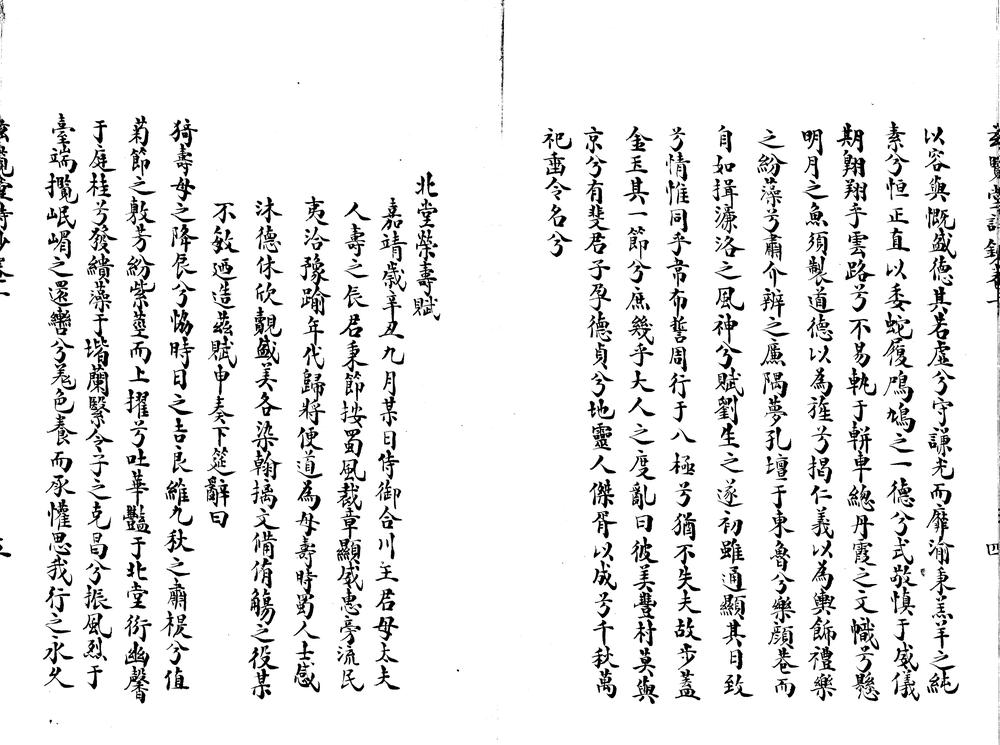 以容與慨盛德其若虛兮守謙光而靡渝秉羔羊之純
素兮恒正直以委蛇履鳲鳩之一德兮式敬慎于威儀
期翱翔乎雲路兮不易軌于軿車總丹霞之文幟兮懸
明月之魚須製道德以為旌兮揭仁義以為輿飾禮樂
之紛藻兮肅介辨之廉隅夢孔壇于東魯兮樂顏巷而
自如揖濂洛之風神兮賦劉生之遂初雖通顯其日致
兮情惟同乎韋布誓周行于八極兮猶不失夫故步蓋
金玉其一節兮庶幾乎大人之度亂曰彼美豐村莫與
京兮有斐君子孕德貞兮地靈人傑胥以成兮千秋萬
祀畱令名兮
北堂榮壽賦
嘉靖歲辛丑九月某日侍御合川王君母太夫
人壽之辰君秉節按蜀風裁章顯威惠旁流民
夷洽豫踰年代歸將便道為母壽時蜀人士感
沐德休欣覩盛美各染翰摛文備侑觴之役某
不敏迺造茲賦申奏下筵辭曰
猗壽母之降辰兮協時日之吉良維九秋之肅榥兮值
菊節之敷芳紛紫莖而上擢兮吐華豔于北堂衍幽馨
于庭桂兮發繢藻于堦蘭繄令子之克昌兮振風烈于
臺端攬岷嵋之還轡兮羗色養而承懽思我行之永久
四